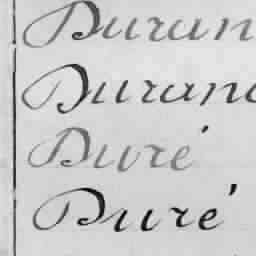 Duran
Durand
Duré
Duré